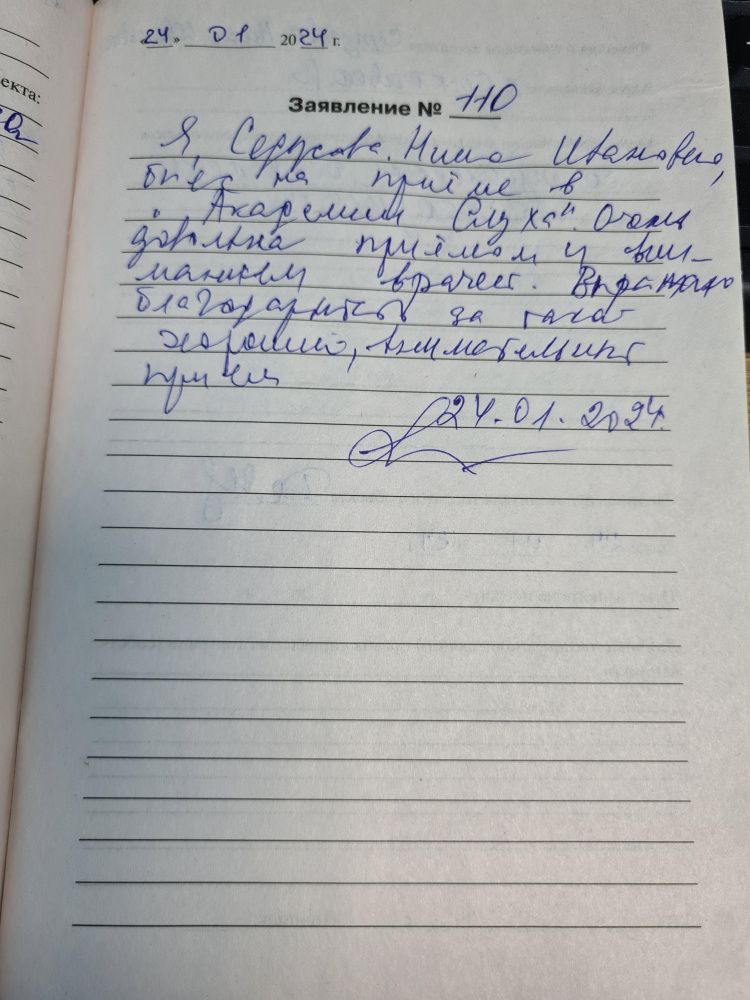 екта:
24» 01 2024 г.
Заявление № 110
Я, Нина Ивановна,
была на приёме в
"Академии Слуха". Очень
довольна приёмом и вни-
манием врачей. Выражаю
благодарность за такой
хороший, внимательный
приём
24.01.2024.